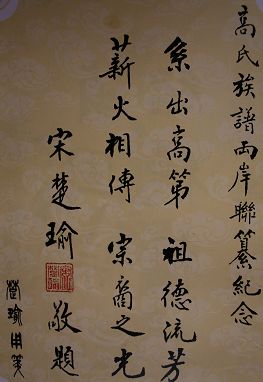 高氏族譜両岸聯纂紀念
系出高第　祖德流芳
薪火相傳　宗裔之光
宋楚瑜　敬題
楚瑜用箋